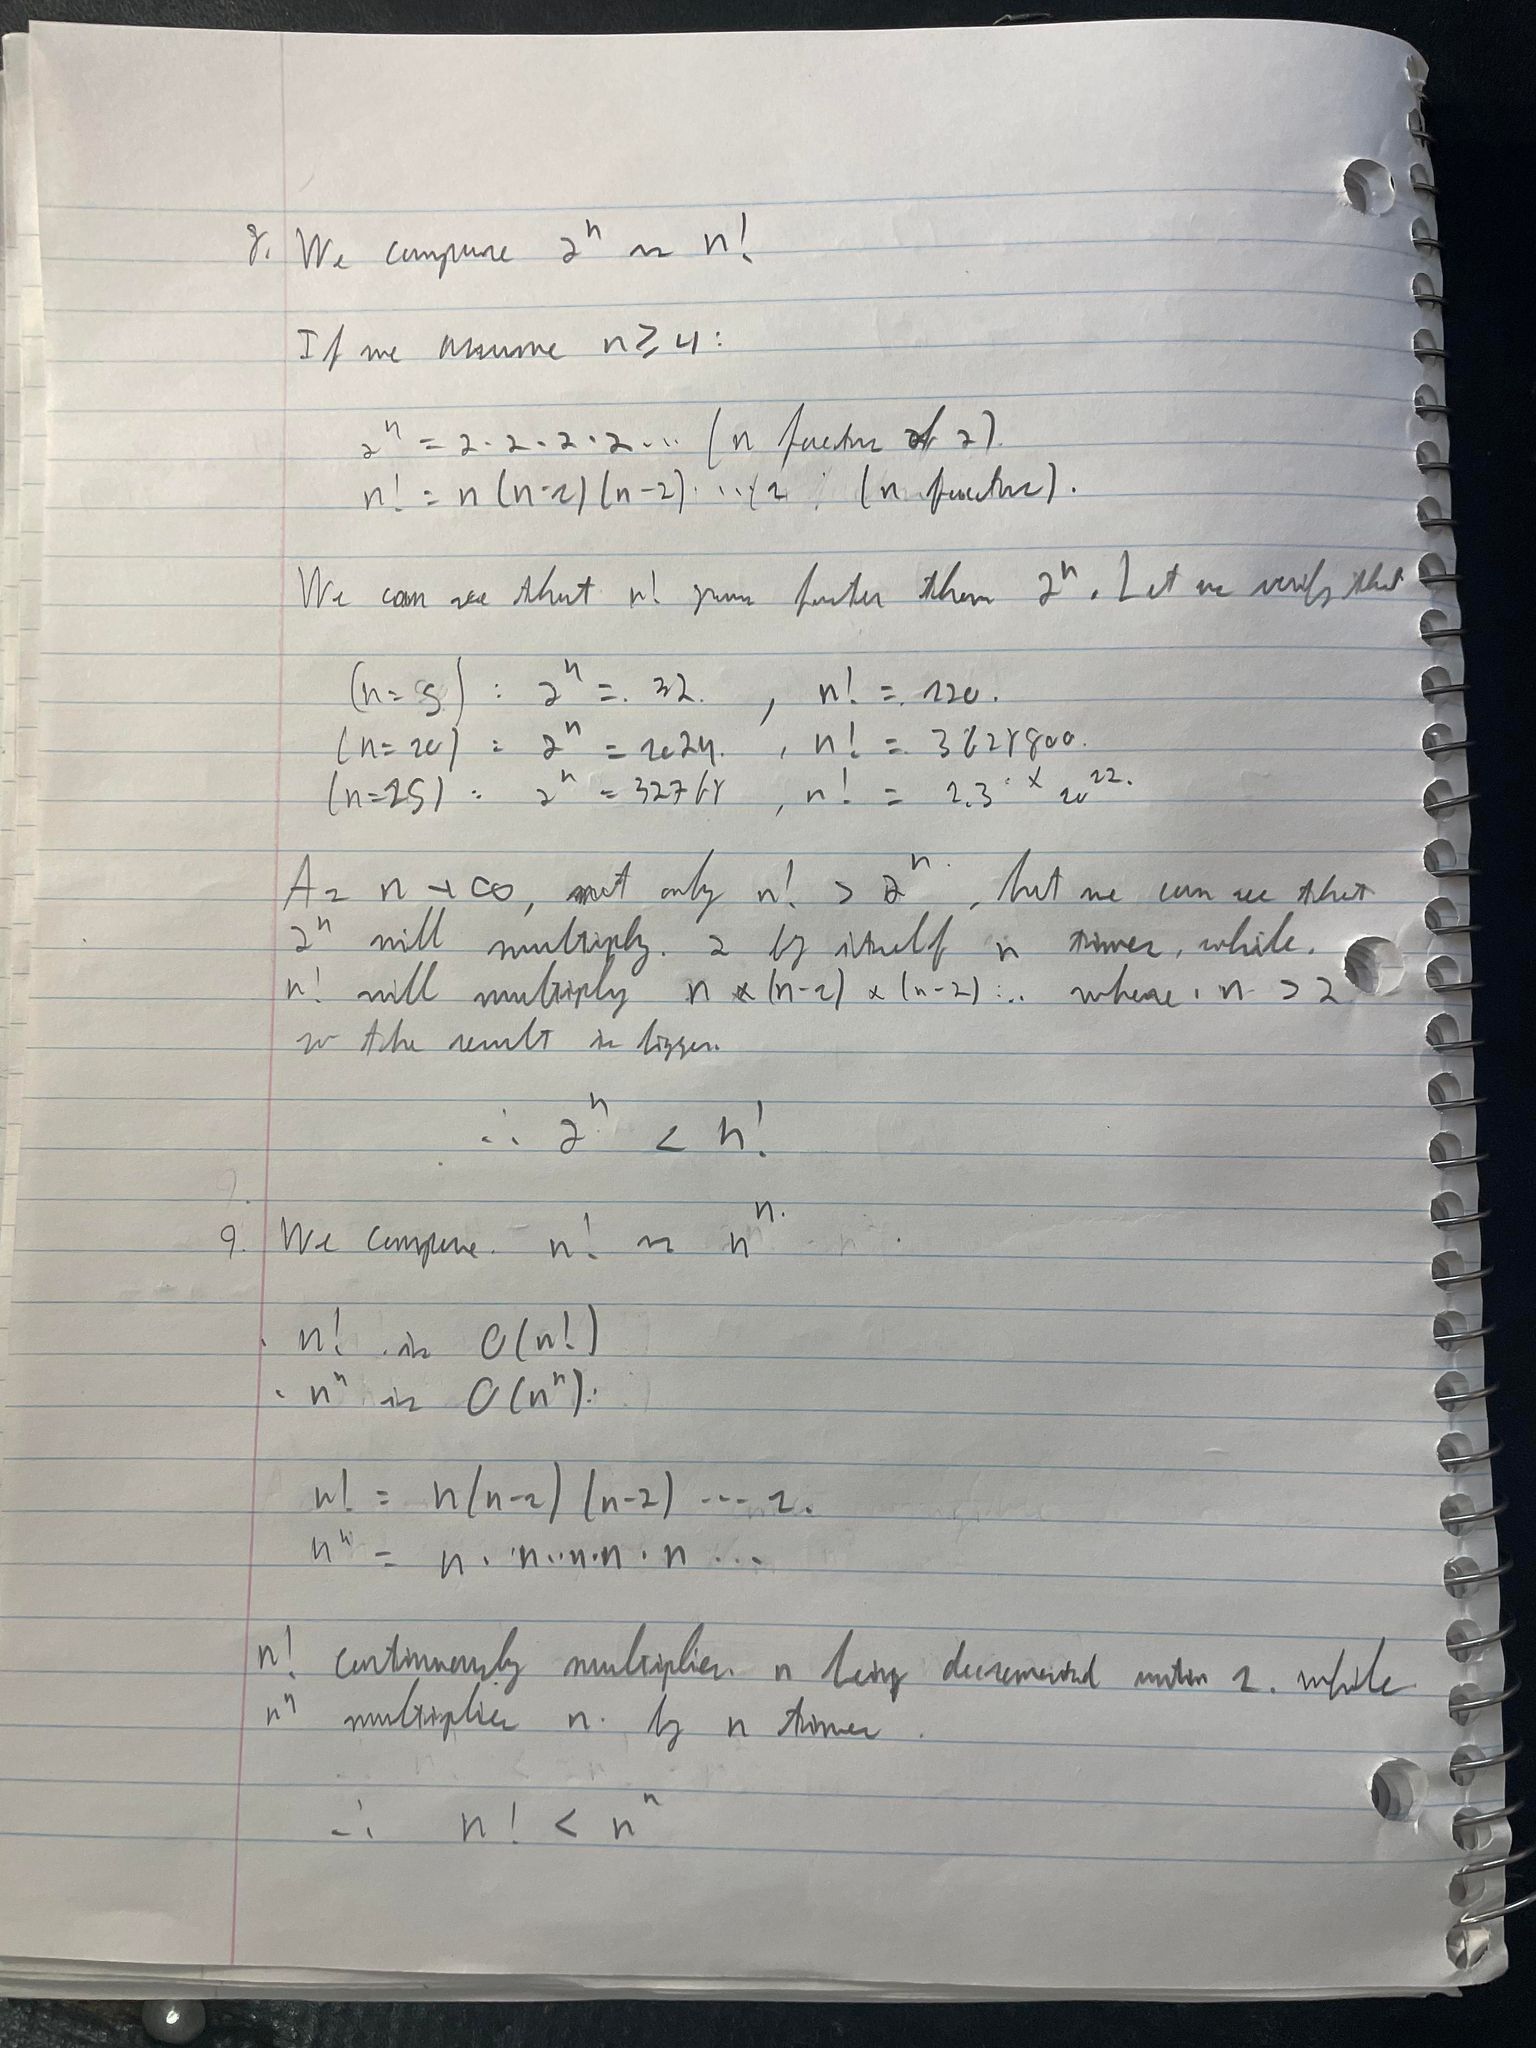 8. We compare 2ⁿ vs n!
If we assume n ≥ 4:
2ⁿ = 2·2·2·2... (n factors of 2).
n! = n(n-1)(n-2)...1 (n factors).
We can see that n! grows faster than 2ⁿ. Let us verify that
(n=5) : 2ⁿ = 32 , n! = 120.
(n=10) : 2ⁿ = 1024 , n! = 3628800.
(n=15) : 2ⁿ = 32768 , n! = 1.3 x 10¹².
As n → ∞, not only n! > 2ⁿ, but we can see that
2ⁿ will multiply 2 by itself n times, while
n! will multiply n x (n-1) x (n-2)... where n > 2
so the result is bigger.
∴ 2ⁿ < n!
9. We compare n! vs nⁿ
· n! is O(n!)
· nⁿ is O(nⁿ):
n! = n(n-1)(n-2)...1.
nⁿ = n·n·n·n·n...
n! continuously multiplies n being decremented 1. while
nⁿ multiplies n by n times.
∴ n! < nⁿ